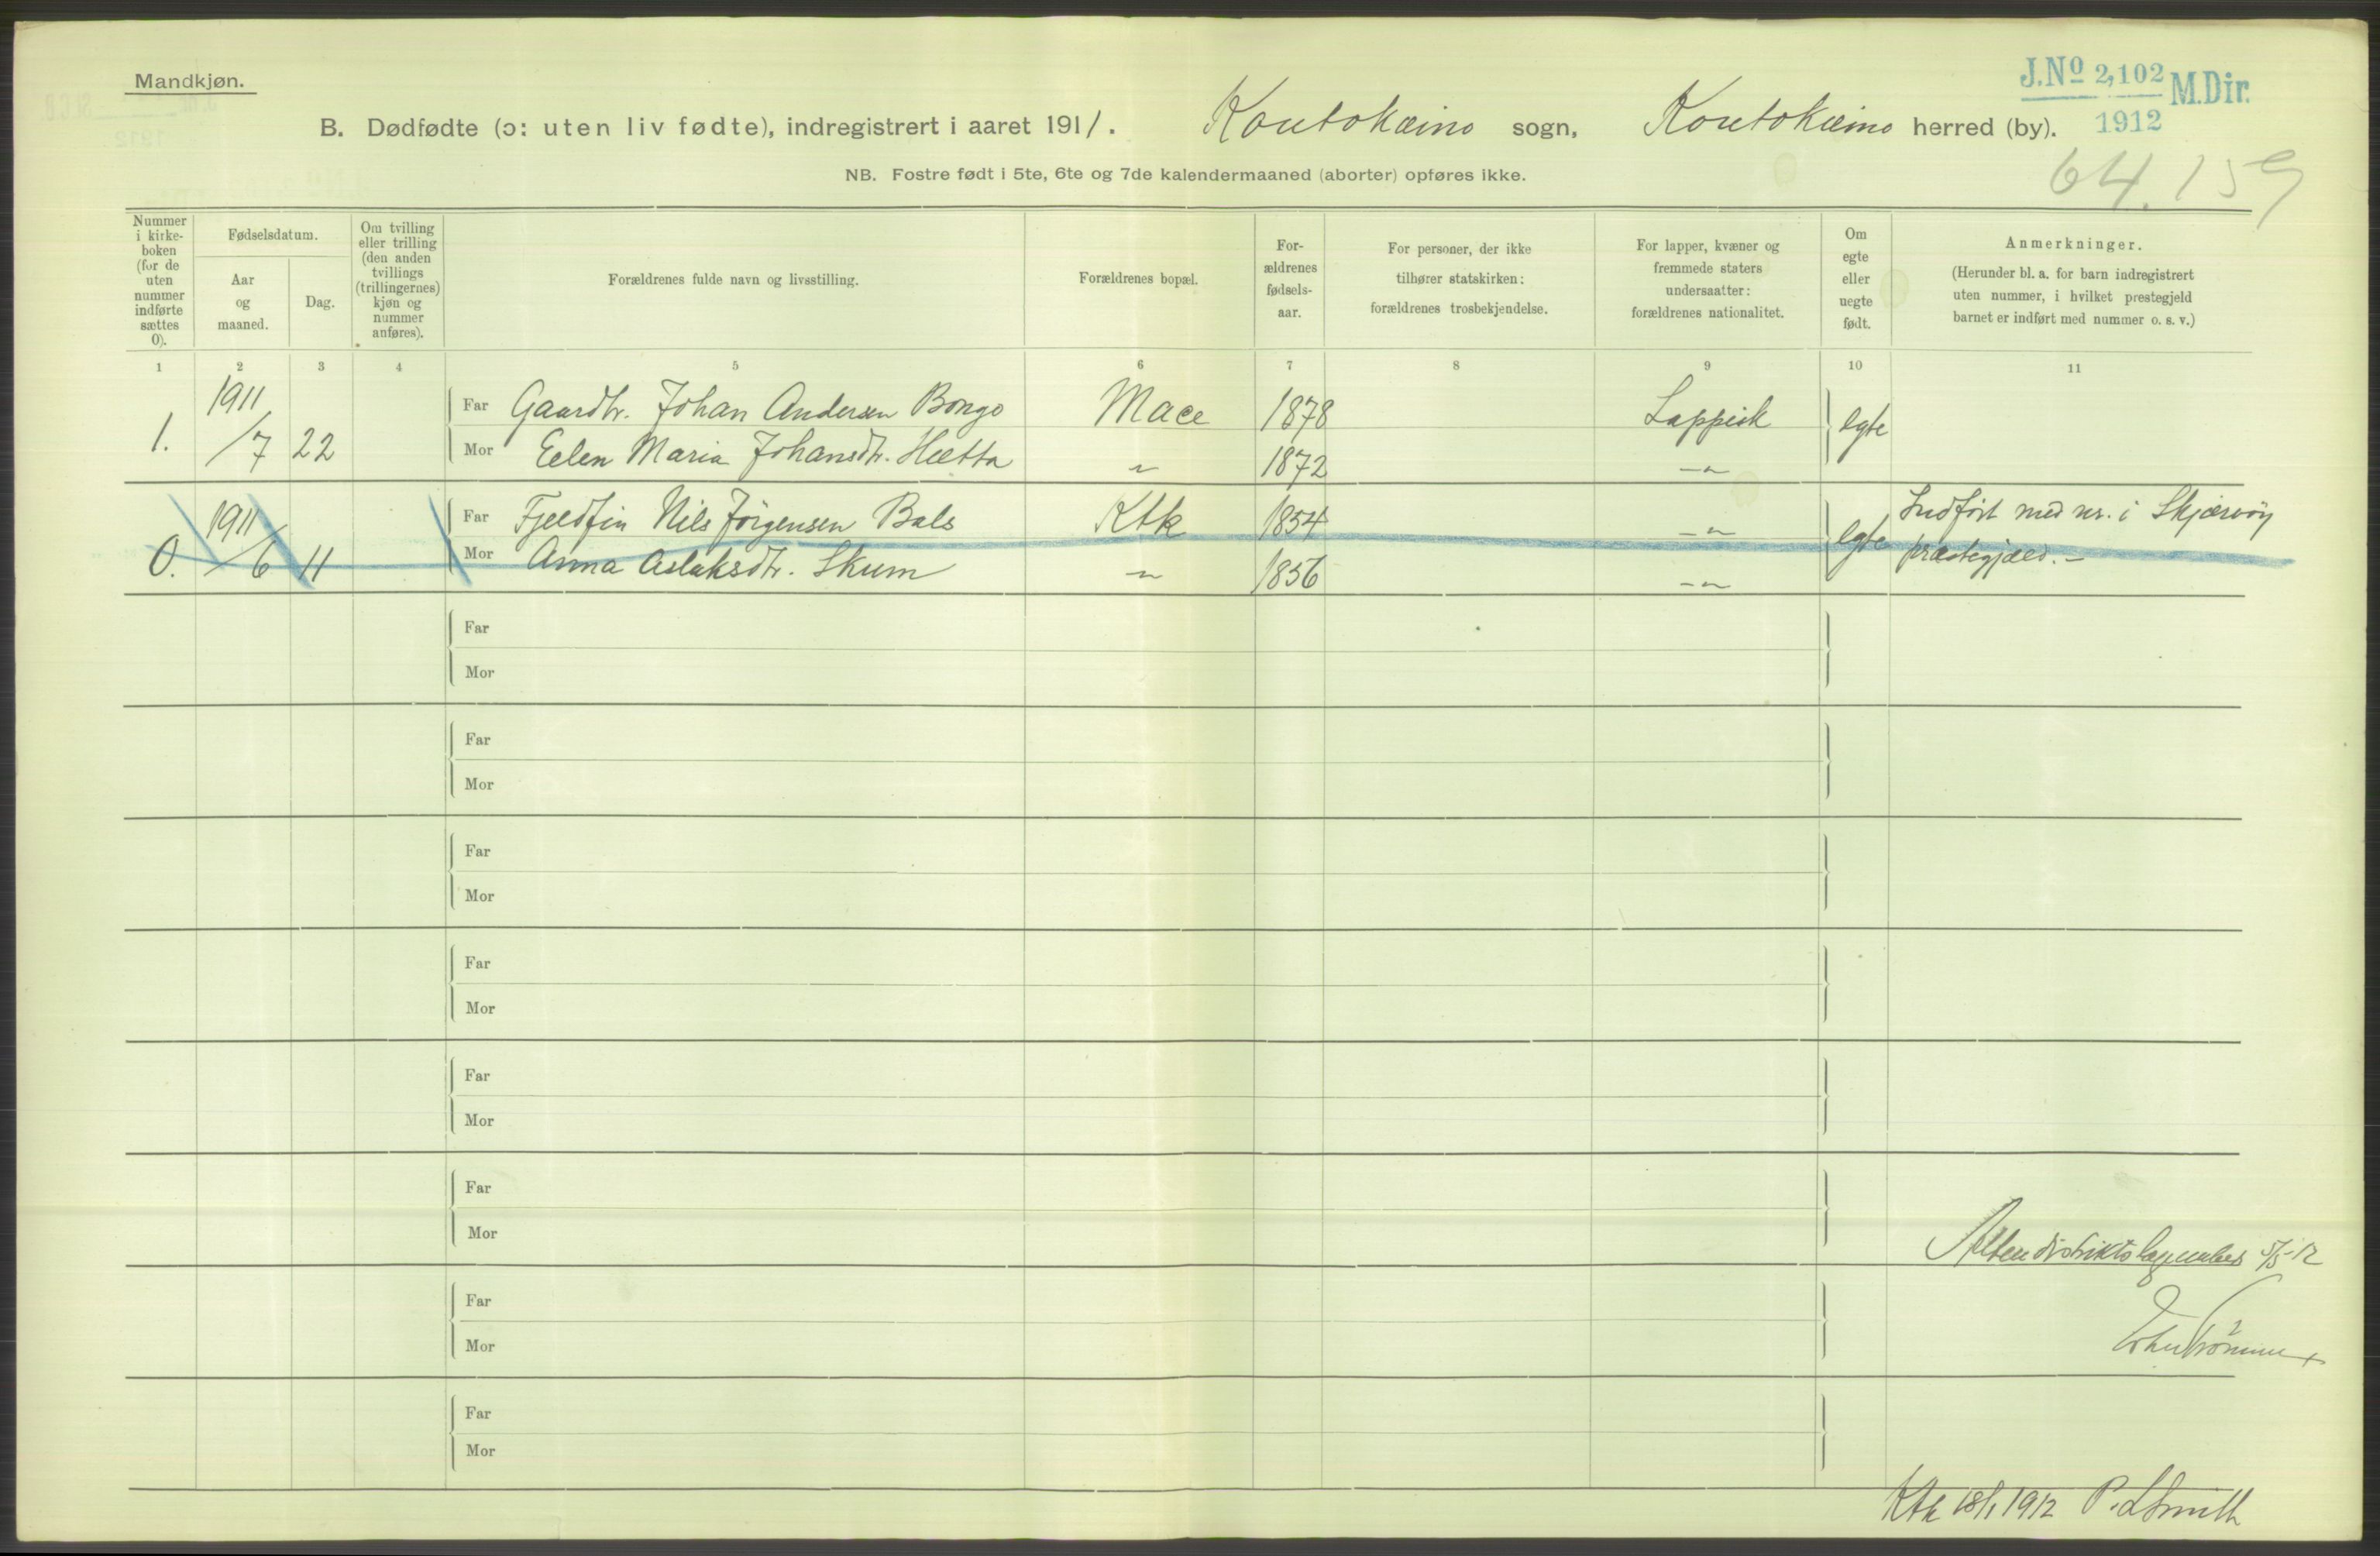 Mandkjøn.
J.No 2,102 M.Dir.
1912
B. Dødfødte (ɔ: uten liv fødte), indregistrert i aaret 1911. Koutokæino sogn, Koutokæino herred (by).
64.159
NB. Fostre født i 5te, 6te og 7de kalendermaaned (aborter) opføres ikke.
Nummer
i kirke-
boken
(for de
uten
nummer
indførte
sættes
0).
Fødselsdatum.
Aar
og
maaned.
Dag.
Om tvilling
eller trilling
(den anden
tvillings
(trillingernes)
kjøn og
nummer
anføres).
Forældrenes fulde navn og livsstilling.
Forældrenes bopæl.
For-
ældrenes
fødsels-
aar.
For personer, der ikke
tilhører statskirken:
forældrenes trosbekjendelse.
For lapper, kvæner og
fremmede staters
undersaatter:
forældrenes nationalitet.
Om
egte
eller
uegte
født.
Anmerkninger.
(Herunder bl. a. for barn indregistrert
uten nummer, i hvilket prestegjeld
barnet er indført med nummer o. s. v.)
1 2 3 4 5 6 7 8 9 10 11
1. 1911 /7 22
Far Gaardbr. Johan Andersen Bongo Mace 1878 Lappisk egte
Mor Eelen Maria Johansdtr. Hætta — " — 1872 — " —
0. 1911 /6 11
Far Fjeldfin Nils Jörgensen Bals Ktk 1854 — " — egte Indfört med nr. i Skjærvöy
Mor Anna Aslaksdtr. Skum — " — 1856 — " — præstegjæld. —
Far
Mor
Far
Mor
Far
Mor
Far
Mor
Far
Mor
Far
Mor
Alten distriktslægeembed 5/3-12
Far
Mor
Far
Mor
Ktk 18/1 1912 P. L. Smith